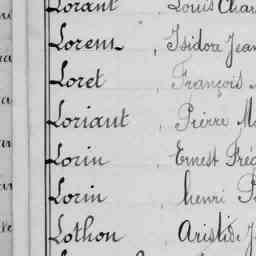 Lorant Louis Char
Lorens, Isidore Jean
Loret, François
Loriant, Pierre Ma
Lorin, Ernest Fréd
Lorin henri P
Lothon Aristide J